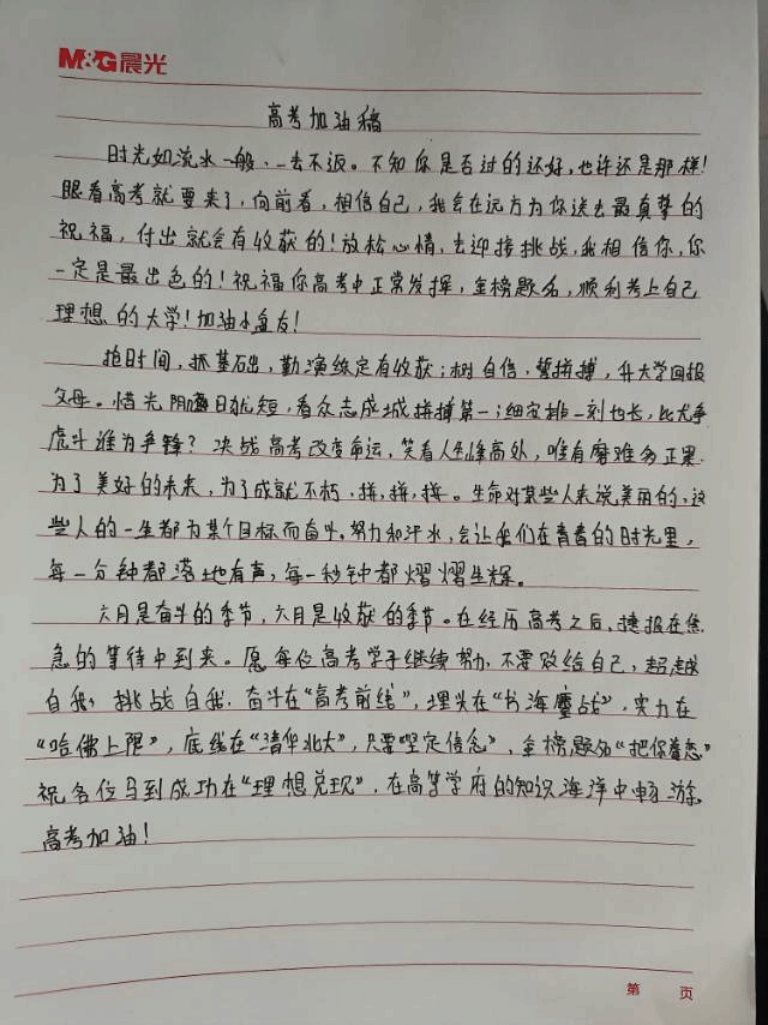 M&G晨光
高考加油稿
时光如流水一般、一去不返。不知你是否过的还好,也许还是那样!
眼看高考就要来了,向前看,相信自己,我会在远方为你送去最真挚的
祝福,付出就会有收获的!放松心情,去迎接挑战,我相信你,你
一定是最出色的!祝福你高考中正常发挥,金榜题名,顺利考上自己
理想的大学!加油小盆友!
抢时间,抓基础,勤演练定有收获;树自信,誓拼搏,升大学回报
父母。惜光阴日犹短,看众志成城拼搏第一;细安排一刻也长,比龙争
虎斗谁为争锋?决战高考改变命运,笑看人生峰高处,唯有磨难多正果.
为了美好的未来,为了成就不朽,拼,拼,拼。生命对某些人来说美丽的,这
些人的一生都为某个目标而奋斗。努力和汗水,会让我们在青春的时光里,
每一分钟都落地有声,每一秒钟都熠熠生辉。
六月是奋斗的季节,六月是收获的季节。在经历高考之后,捷报在焦
急的等待中到来。愿每位高考学子继续努力,不要败给自己,超越
自我,挑战自我.奋斗在“高考前线”,埋头在“书海鏖战”,实力在
“哈佛上限”,底线在“清华北大”,只要“坚定信念”,金榜题名“把你眷恋”
祝各位马到成功在“理想兑现”.在高等学府的知识海洋中畅游.
高考加油!
第 页